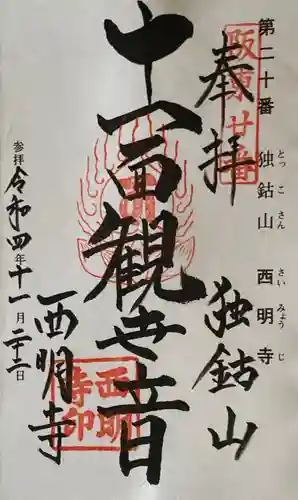 第二十番 独鈷山 西明寺
とっこさん さいみょうじ
奉拝
阪東廿番
独鈷山
十一面観世音
西明寺
西明寺印
参拝 令和四年十一月二十三日